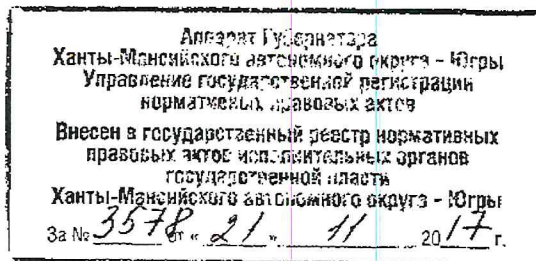 Аппарат Губернатора
Ханты-Мансийского автономного округа – Югры
Управление государственной регистрации
нормативных правовых актов
Внесен в государственный реестр нормативных
правовых актов исполнительных органов
государственной власти
Ханты-Мансийского автономного округа – Югры
За № 3578 от « 21 » 11 2017 г.